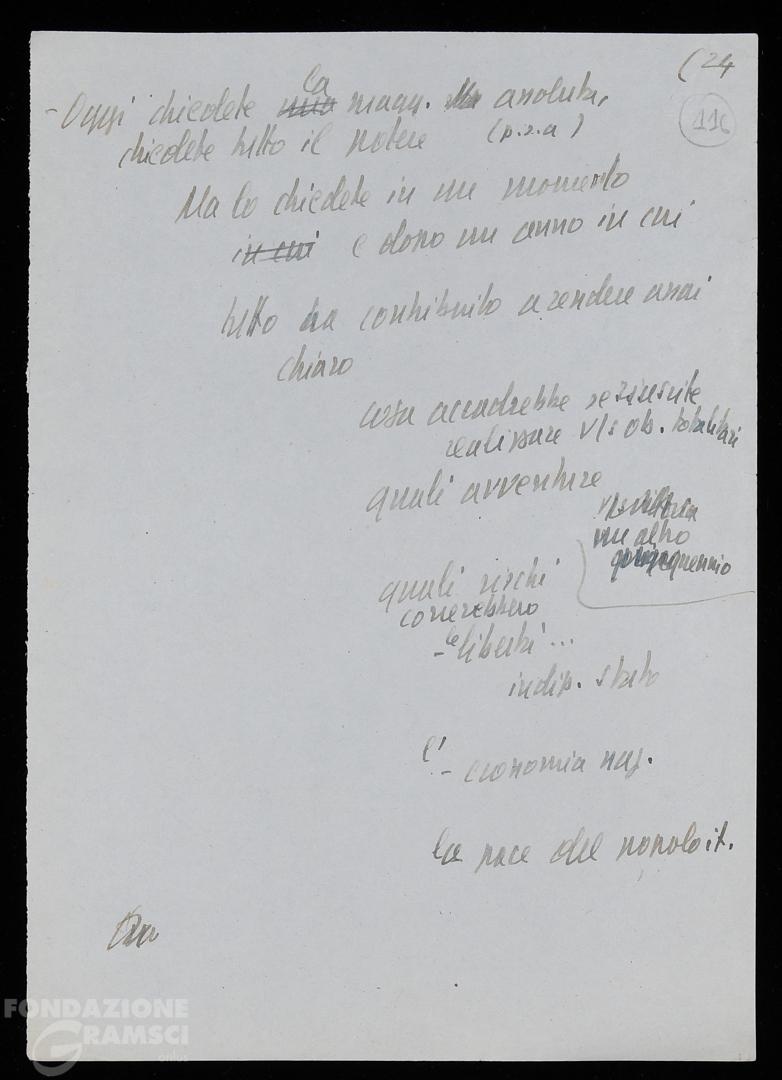 (24
116
- Oggi chiedete una la magg. assoluta,
chiedete tutto il potere (p.s.a)
Ma lo chiedete in un momento
in cui e dopo un anno in cui
tutto ha contribuito a rendere assai
chiaro
cosa accadrebbe se riusciste
realizzare v/s ob. totalitari
quali avventure
v/s vittoria
un altro
quinquennio
quali rischi
correrebbero
- le libertà...
indip. stato
l'
- economia naz.
la pace del popolo it.
Ora
FONDAZIONE
GRAMSCI
onlus